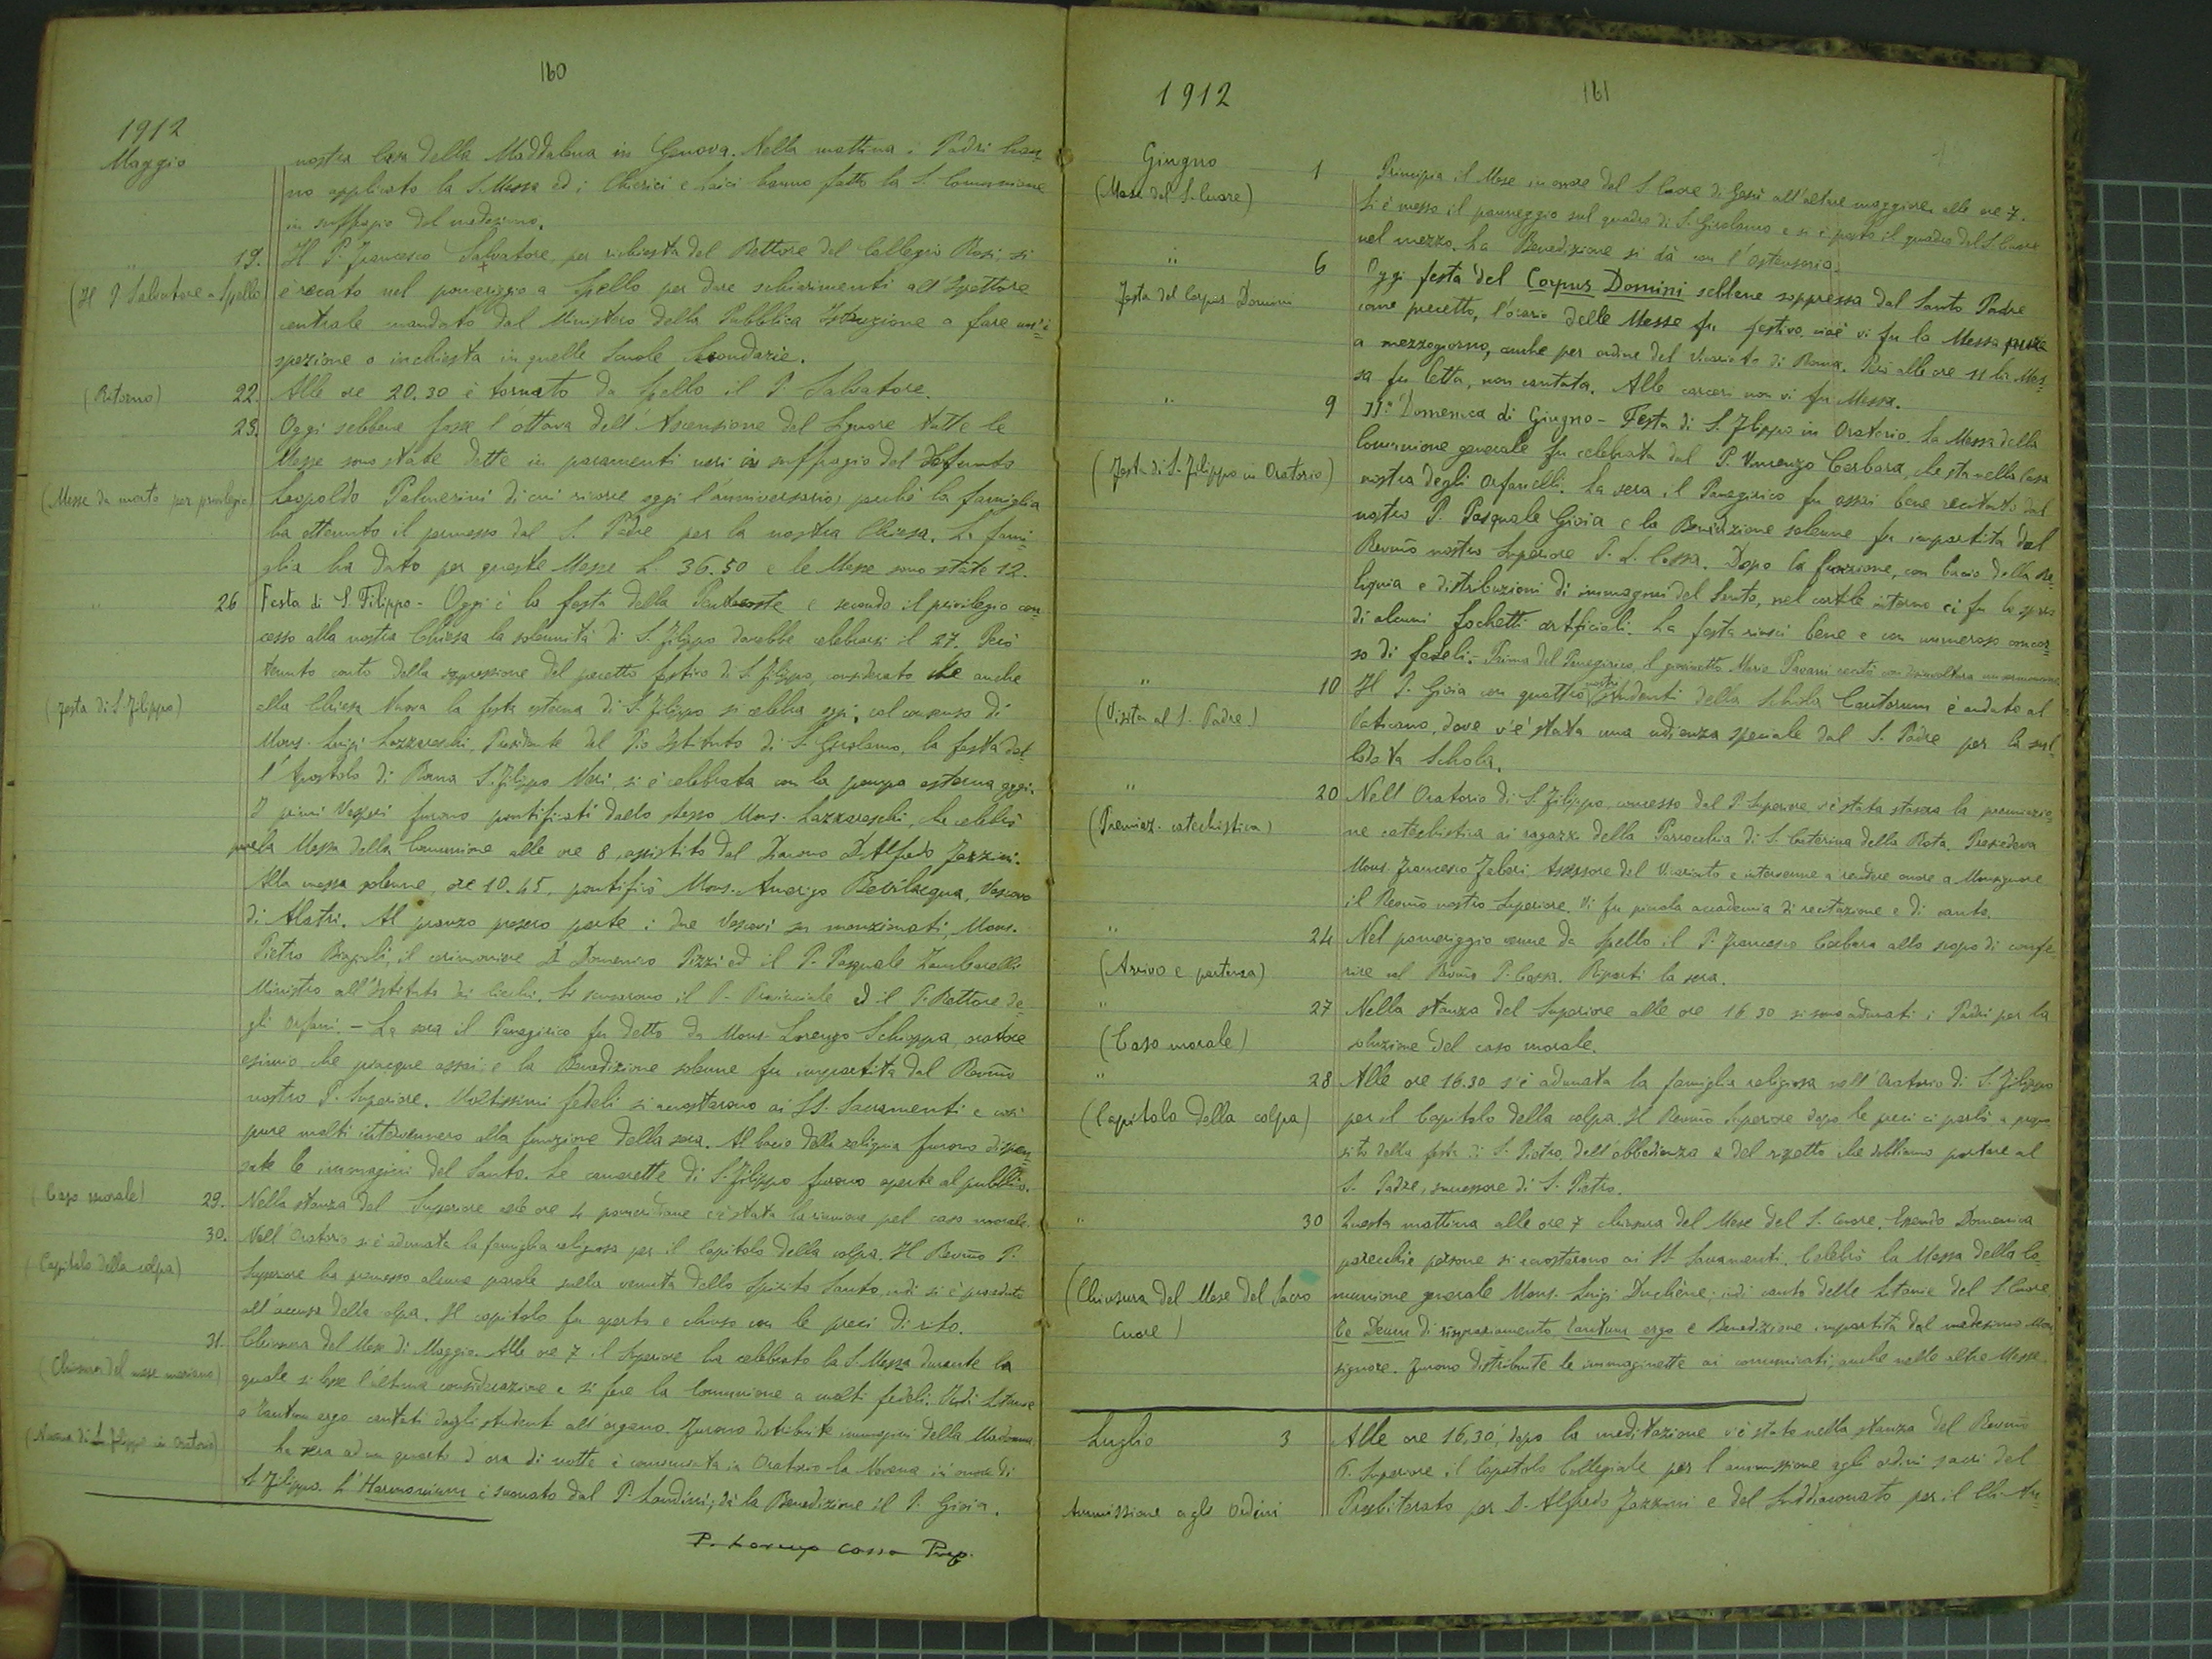 160
1912
Maggio
nostra Casa della Maddalena in Genova. Nella mattina i Padri han-
no applicato la S. Messa ed i Chierici e Laici hanno fatto la S. Comunione
in suffragio del medesimo.
" 19. Il P. Francesco Salvatore, per richiesta del Rettore del Collegio Rosi, si
(Il P. Salvatore a Spello) è recato nel pomeriggio a Spello per dare schiarimenti all'Ispettore
centrale mandato dal Ministero della Pubblica Istruzione a fare un'i-
spezione o inchiesta in quelle Scuole Secondarie.
(Ritorno) 22. Alle ore 20.30 è tornato da Spello il P. Salvatore.
23. Oggi sebbene fosse l'ottava dell'Ascensione del Signore tutte le
Messe sono state dette in paramenti neri in suffragio del defunto
(Messe da morto per privilegio) Leopoldo Palmerini di cui ricorre oggi l'anniversario, perchè la famiglia
ha ottenuto il permesso dal S. Padre per la nostra Chiesa. La fami-
glia ha dato per queste Messe L. 36.50 e le Messe sono state 12.
" 26 Festa di S. Filippo - Oggi è la festa della Pentecoste e secondo il privilegio con-
cesso alla nostra Chiesa la solennità di S. Filippo dovrebbe celebrarsi il 27. Però
tenuto conto della soppressione del precetto festivo di S. Filippo, considerato che anche
(Festa di S. Filippo) alla Chiesa Nuova la festa esterna di S. Filippo si celebra oggi, col consenso di
Mons. Luigi Lazzareschi, Presidente del Pio Istituto di S. Girolamo, la festa del-
l'Apostolo di Roma S. Filippo Neri, si è celebrata con la pompa esterna oggi.
I primi Vespri furono pontificati dallo stesso Mons. Lazzareschi, che celebrò
pure la Messa della Comunione alle ore 8, assistito dal Diacono D. Alfredo Fazzini.
Alla messa solenne, ore 10.45, pontificò Mons. Amerigo Bevilacqua, Vescovo
di Alatri. Al pranzo presero parte i due Vescovi su menzionati, Mons.
Pietro il cerimoniere D. Domenico Pizzi ed il P. Pasquale Zambarelli
Ministro all'Istituto dei Ciechi. Si scusarono il P. Provinciale ed il P. Rettore de-
gli Orfani. - La sera il Panegirico fu detto da Mons. Lorenzo Schioppa, oratore
esimio che piacque assai, e la Benedizione solenne fu impartita dal Revm̃o
nostro P. Superiore. Moltissimi fedeli si accostarono ai SS. Sacramenti e così
pure molti intervennero alla funzione della sera. Al bacio della reliquia furono dispen-
sate le immagini del Santo. Le camerette di S. Filippo furono aperte al pubblico.
(Caso morale) 29. Nella stanza del Superiore alle ore 4 pomeridiane c'è stata la riunione pel caso morale.
30. Nell'Oratorio si è adunata la famiglia religiosa per il Capitolo della colpa. Il Revm̃o P.
(Capitolo della colpa) Superiore ha premesso alcune parole sulla venuta dello Spirito Santo, indi si è proceduto
all'accusa della colpa. Il capitolo fu aperto e chiuso con le preci di rito.
31. Chiusura del Mese di Maggio. Alle ore 7 il Superiore ha celebrato la S. Messa durante la
(Chiusura del mese mariano) quale si lesse l'ultima considerazione e si fece la Comunione a molti fedeli. Indi Litanie
e Tantum ergo cantati dagli studenti all'organo. Furono distribuite immagini della Madonna.
(Novena di S. Filippo in Oratorio) La sera ad un quarto d'ora di notte è cominciata in Oratorio la Novena in onore di
S. Filippo. L'Harmonium è suonato dal P. Landini; dà la Benedizione il P. Gioia.
P. Lorenzo Cossa Prep.
1912
161
Giugno 1 Principia il Mese in onore del S. Cuore di Gesù all'altare maggiore, alle ore 7.
(Mese del S. Cuore) Si è messo il panneggio sul quadro di S. Girolamo e si è posto il quadro del S. Cuore
nel mezzo. La Benedizione si dà con l'ostensorio.
" 6 Oggi festa del Corpus Domini sebbene soppressa dal Santo Padre
Festa del Corpus Domini come precetto, l'orario delle Messe fu festivo, cioè vi fu la Messa pure
a mezzogiorno, anche per ordine del Vicariato di Roma. Però alle ore 11 la Mes-
sa fu letta, non cantata. Alle carceri non vi fu Messa.
" 9 IIª Domenica di Giugno - Festa di S. Filippo in Oratorio. La Messa della
Comunione generale fu celebrata dal P. Vincenzo Cerbara che sta nella Casa
(Festa di S. Filippo in Oratorio) nostra degli Orfanelli. La sera il Panegirico fu assai bene recitato dal
nostro P. Pasquale Gioia e la Benedizione solenne fu impartita dal
Revm̃o nostro Superiore P. L. Cossa. Dopo la funzione, con bacio della Re-
liquia e distribuzioni di immagini del Santo, nel cortile interno ci fu lo sparo
di alcuni fochetti artificiali. La festa riuscì bene e con numeroso concor-
so di fedeli. - Prima del Panegirico, il giovinetto Mario Pavani recitò con disinvoltura un sermoncino.
" 10 Il P. Gioia con quattro nostri studenti della Schola Cantorum è andato al
(Visita al S. Padre) Vaticano, dove v'è stata una udienza speciale dal S. Padre per la sul-
lodata Schola.
" 20 Nell'Oratorio di S. Filippo, concesso dal P. Superiore, v'è stata stasera la premiazio-
(Premiaz. catechistica) ne catechistica ai ragazzi della Parrocchia di S. Caterina della Rota. Presiedeva
Mons. Francesco Faberi, Assessore del Vicariato e intervenne a rendere onore a Monsignore
il Revm̃o nostro Superiore. Vi fu piccola accademia di recitazione e di canto.
" 24 Nel pomeriggio venne da Spello il P. Francesco Cerbara allo scopo di confe-
(Arrivo e partenza) rire col Revm̃o P. Cossa. Ripartì la sera.
" 27 Nella stanza del Superiore alle ore 16.30 si sono adunati i Padri per la
(Caso morale) soluzione del caso morale.
" 28 Alle ore 16.30 s'è adunata la famiglia religiosa nell'Oratorio di S. Filippo
(Capitolo della colpa) per il Capitolo della colpa. Il Revm̃o Superiore dopo le preci ci parlò a propo-
sito della festa di S. Pietro, dell'obbedienza e del rispetto che dobbiamo portare al
S. Padre, successore di S. Pietro.
" 30 Questa mattina alle ore 7 chiusura del Mese del S. Cuore. Essendo Domenica
parecchie persone si accostarono ai SS. Sacramenti. Celebrò la Messa della Co-
(Chiusura del Mese del Sacro munione generale Mons. Luigi Duchêne; indi canto delle Litanie del S. Cuore,
Cuore) Te Deum di ringraziamento, Tantum ergo e Benedizione impartita dal medesimo Mon-
signore. Furono distribuite le immaginette ai comunicati, anche nelle altre Messe.
Luglio 3 Alle ore 16,30, dopo la meditazione v'è stato nella stanza del Revm̃o
P. Superiore il Capitolo Collegiale per l'ammissione agli ordini sacri del
Ammissione agli Ordini Presbiterato per D. Alfredo Fazzini e del Suddiaconato per il Ch. An-